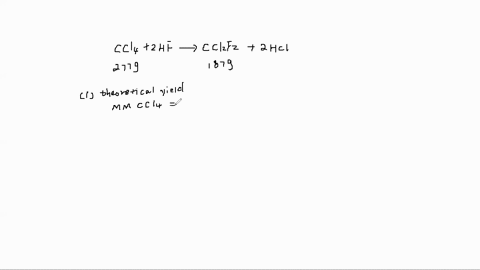 CCl4 + 2HF → CCl2F2 + 2HCl
277g 187g
(1) theoretical yield
MM CCl4 =